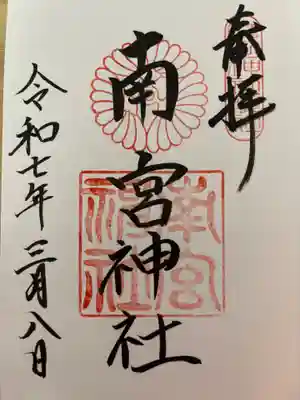 奉拝
南宮神社
令和七年三月八日
南宮
神社